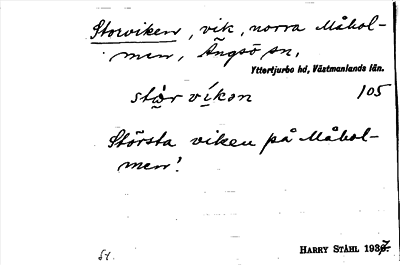 Storviken, vik, norra Måhol-
men, Ängsö sn,
Yttertjurbo hd, Västmanlands län.
stòr víkən 105
Största viken på Måhol-
men!
St. HARRY STÅHL 1937.